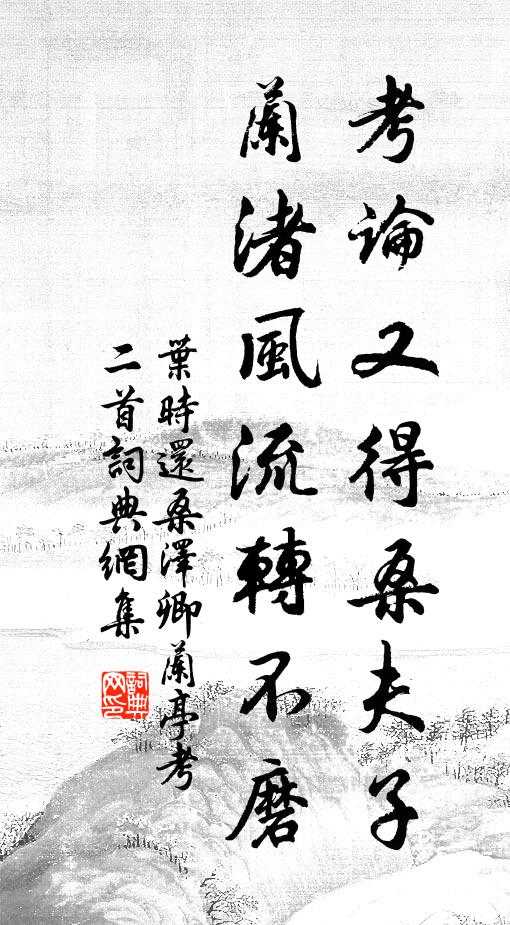 考論又得桑夫子
蘭渚風流轉不磨
葉時還桑澤卿蘭亭考
二首詞典網集
詞典网印